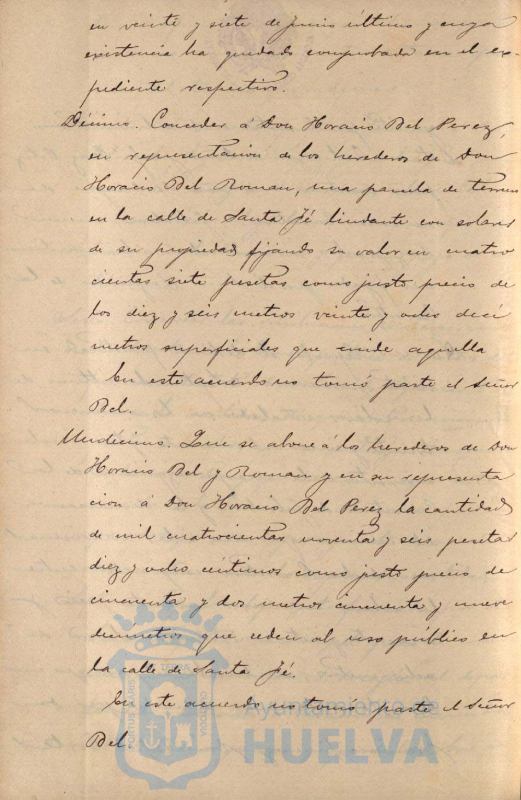 en veinte y siete de junio último y cuya
existencia ha quedado comprobada en el ex-
pediente respectivo.
Décimo. Conceder á Don Horacio Bel Perez,
en representacion de los herederos de Don
Horacio Bel Roman, una parcela de terreno
en la calle de Santa Fé lindante con solares
de su propiedad fijando su valor en cuatro
cientas siete pesetas como justo precio de
los diez y seis metros veinte y ocho decí
metros superficiales que mide aquella
En este acuerdo no tomó parte el Señor
Bel.
Undécimo. Que se abone á los herederos de Don
Horacio Bel y Roman y en su representa
cion á Don Horacio Bel Perez la cantidad
de mil cuatrocientas noventa y seis pesetas
diez y ocho céntimos como justo precio de
cincuenta y dos metros cincuenta y nueve
decímetros que ceden al uso público en
la calle de Santa Fé.
En este acuerdo no tomó parte el Señor
Bel.
Ayuntamiento de
HUELVA